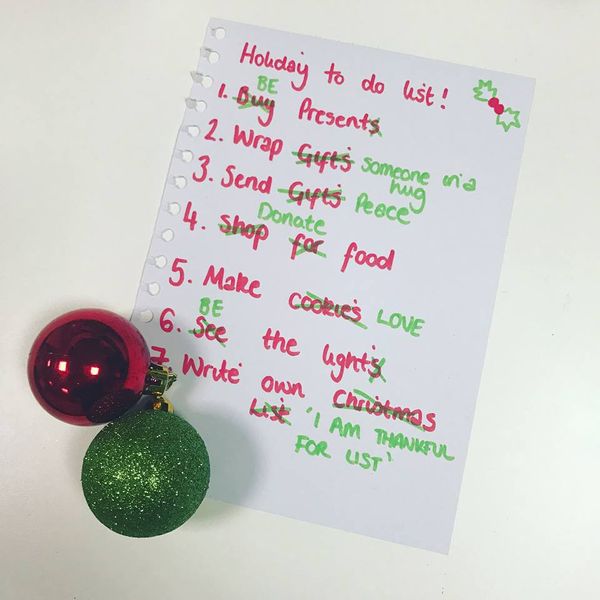 Holiday to do list!
BE
1. Buy Presents
2. Wrap Gifts someone in a
hug
3. Send Gifts Peace
Donate
4. Shop for food
5. Make cookies LOVE
BE
6. See the lights
7. Write own Christmas
List 'I AM THANKFUL
FOR LIST'